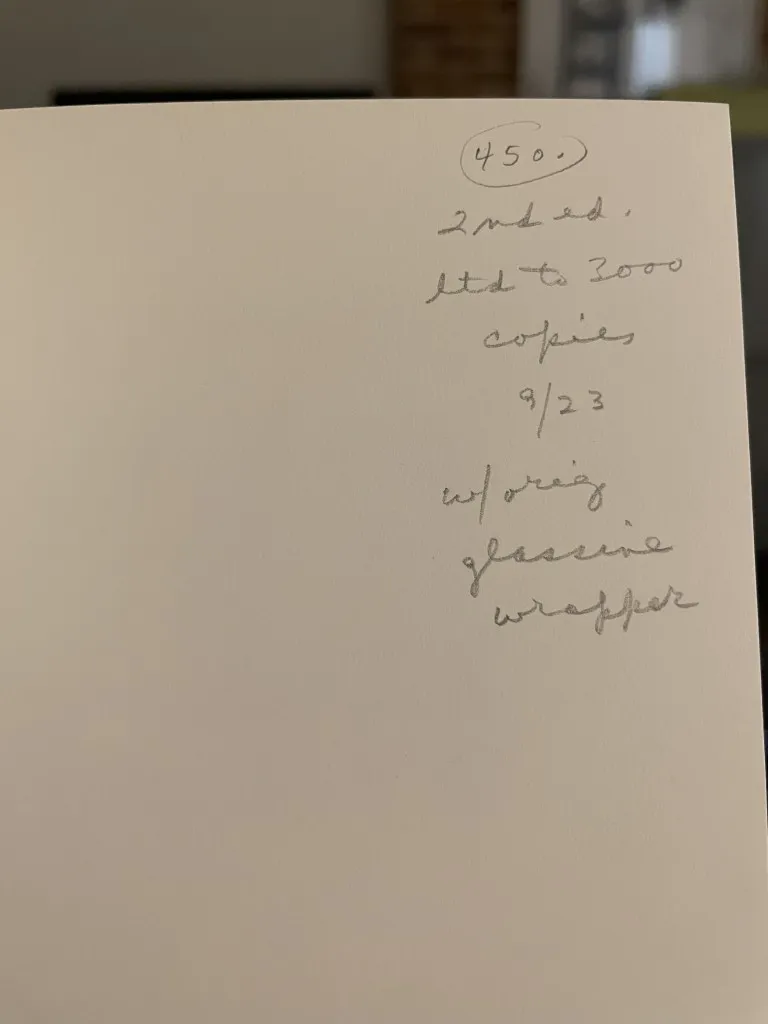 450.
2nd ed.
ltd to 3000
copies
9/23
w/orig
glassine
wrapper